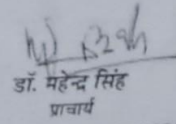 डॉ. महेन्द्र सिंह
प्राचार्य